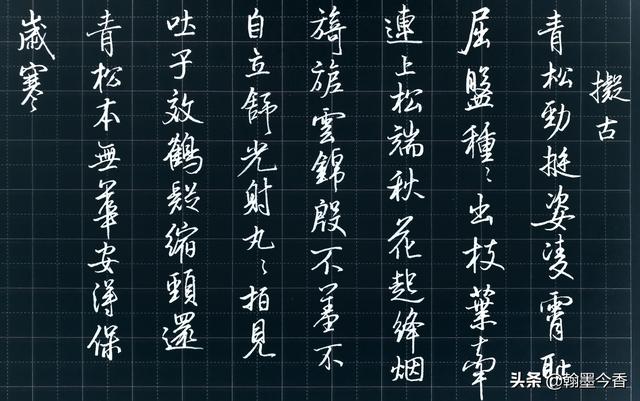 擬古
青松勁挺姿凌霄耻
屈盤種〻出枝葉牽
連上松端秋花起絳烟
旖旎雲錦殷不羞不
自立舒光射丸〻柏見
吐子效鶴疑縮頸還
青松本無華安得保
歲寒
头条@翰墨今香